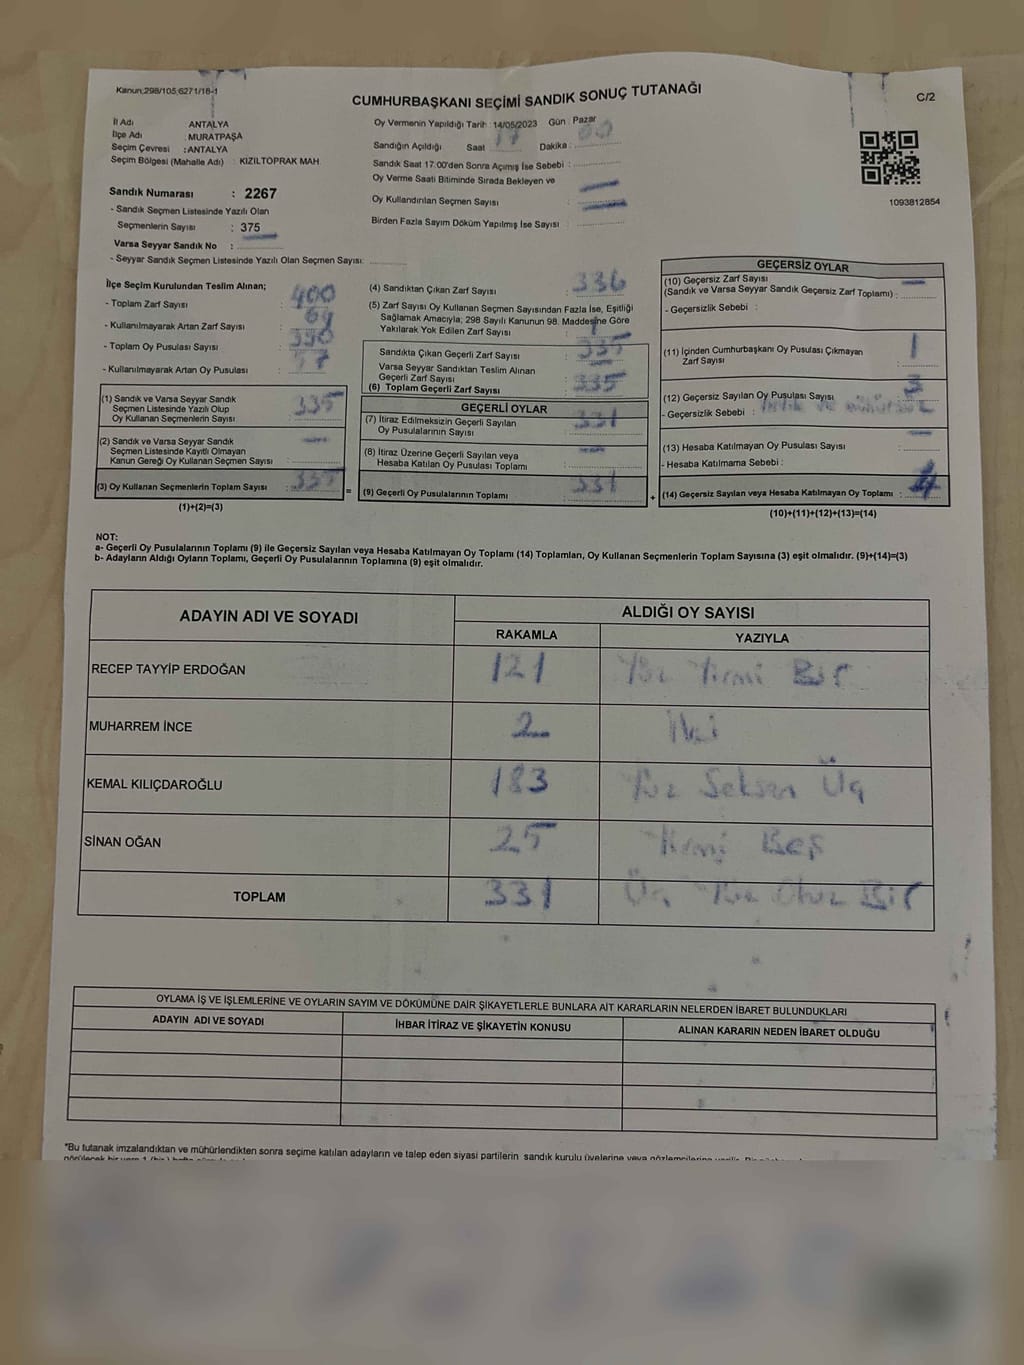 Kanun;298/105;6271/18-1
CUMHURBAŞKANI SEÇİMİ SANDIK SONUÇ TUTANAĞI
C/2
İl Adı ANTALYA
İlçe Adı : MURATPAŞA
Seçim Çevresi : ANTALYA
Seçim Bölgesi (Mahalle Adı) : KIZILTOPRAK MAH
Sandık Numarası : 2267
- Sandık Seçmen Listesinde Yazılı Olan
Seçmenlerin Sayısı : 375
Varsa Seyyar Sandık No :
- Seyyar Sandık Seçmen Listesinde Yazılı Olan Seçmen Sayısı:
Oy Vermenin Yapıldığı Tarih: 14/05/2023 Gün : Pazar
Sandığın Açıldığı Saat : 17 Dakika : 00
Sandık Saat 17:00'den Sonra Açımış İse Sebebi :
Oy Verme Saati Bitiminde Sırada Bekleyen ve
Oy Kullandırılan Seçmen Sayısı :
Birden Fazla Sayım Döküm Yapılmış İse Sayısı :
1093812854
İlçe Seçim Kurulundan Teslim Alınan;
- Toplam Zarf Sayısı : 400
- Kullanılmayarak Artan Zarf Sayısı : 64
- Toplam Oy Pusulası Sayısı : 390
- Kullanılmayarak Artan Oy Pusulası :
(1) Sandık ve Varsa Seyyar Sandık
Seçmen Listesinde Yazılı Olup
Oy Kullanan Seçmenlerin Sayısı : 335
(2) Sandık ve Varsa Seyyar Sandık
Seçmen Listesinde Kayıtlı Olmayan
Kanun Gereği Oy Kullanan Seçmen Sayısı :
(3) Oy Kullanan Seçmenlerin Toplam Sayısı : 335
(1)+(2)=(3)
(4) Sandıktan Çıkan Zarf Sayısı : 336
(5) Zarf Sayısı Oy Kullanan Seçmen Sayısından Fazla İse, Eşitliği
Sağlamak Amacıyla; 298 Sayılı Kanunun 98. Maddesine Göre
Yakılarak Yok Edilen Zarf Sayısı : 1
Sandıkta Çıkan Geçerli Zarf Sayısı : 335
Varsa Seyyar Sandıktan Teslim Alınan
Geçerli Zarf Sayısı :
(6) Toplam Geçerli Zarf Sayısı : 335
GEÇERLİ OYLAR
(7) İtiraz Edilmeksizin Geçerli Sayılan
Oy Pusulalarının Sayısı : 331
(8) İtiraz Üzerine Geçerli Sayılan veya
Hesaba Katılan Oy Pusulası Toplamı :
= (9) Geçerli Oy Pusulalarının Toplamı : 331
GEÇERSİZ OYLAR
(10) Geçersiz Zarf Sayısı
(Sandık ve Varsa Seyyar Sandık Geçersiz Zarf Toplamı) :
- Geçersizlik Sebebi :
(11) İçinden Cumhurbaşkanı Oy Pusulası Çıkmayan
Zarf Sayısı : 1
(12) Geçersiz Sayılan Oy Pusulası Sayısı : 3
- Geçersizlik Sebebi :
(13) Hesaba Katılmayan Oy Pusulası Sayısı :
- Hesaba Katılmama Sebebi :
+ (14) Geçersiz Sayılan veya Hesaba Katılmayan Oy Toplamı : 4
(10)+(11)+(12)+(13)=(14)
NOT:
a- Geçerli Oy Pusulalarının Toplamı (9) ile Geçersiz Sayılan veya Hesaba Katılmayan Oy Toplamı (14) Toplamları, Oy Kullanan Seçmenlerin Toplam Sayısına (3) eşit olmalıdır. (9)+(14)=(3)
b- Adayların Aldığı Oyların Toplamı, Geçerli Oy Pusulalarının Toplamına (9) eşit olmalıdır.
ADAYIN ADI VE SOYADI ALDIĞI OY SAYISI
RAKAMLA YAZIYLA
RECEP TAYYİP ERDOĞAN 121 Yüz Yirmi Bir
MUHARREM İNCE 2 İki
KEMAL KILIÇDAROĞLU 183 Yüz Seksen Üç
SİNAN OĞAN 25 Yirmi Beş
TOPLAM 331 Üç Yüz Otuz Bir
OYLAMA İŞ VE İŞLEMLERİNE VE OYLARIN SAYIM VE DÖKÜMÜNE DAİR ŞİKAYETLERLE BUNLARA AİT KARARLARIN NELERDEN İBARET BULUNDUKLARI
ADAYIN ADI VE SOYADI İHBAR İTİRAZ VE ŞİKAYETİN KONUSU ALINAN KARARIN NEDEN İBARET OLDUĞU
*Bu tutanak imzalandıktan ve mühürlendikten sonra seçime katılan adayların ve talep eden siyasi partilerin sandık kurulu üyelerine veya gözlemcilerine